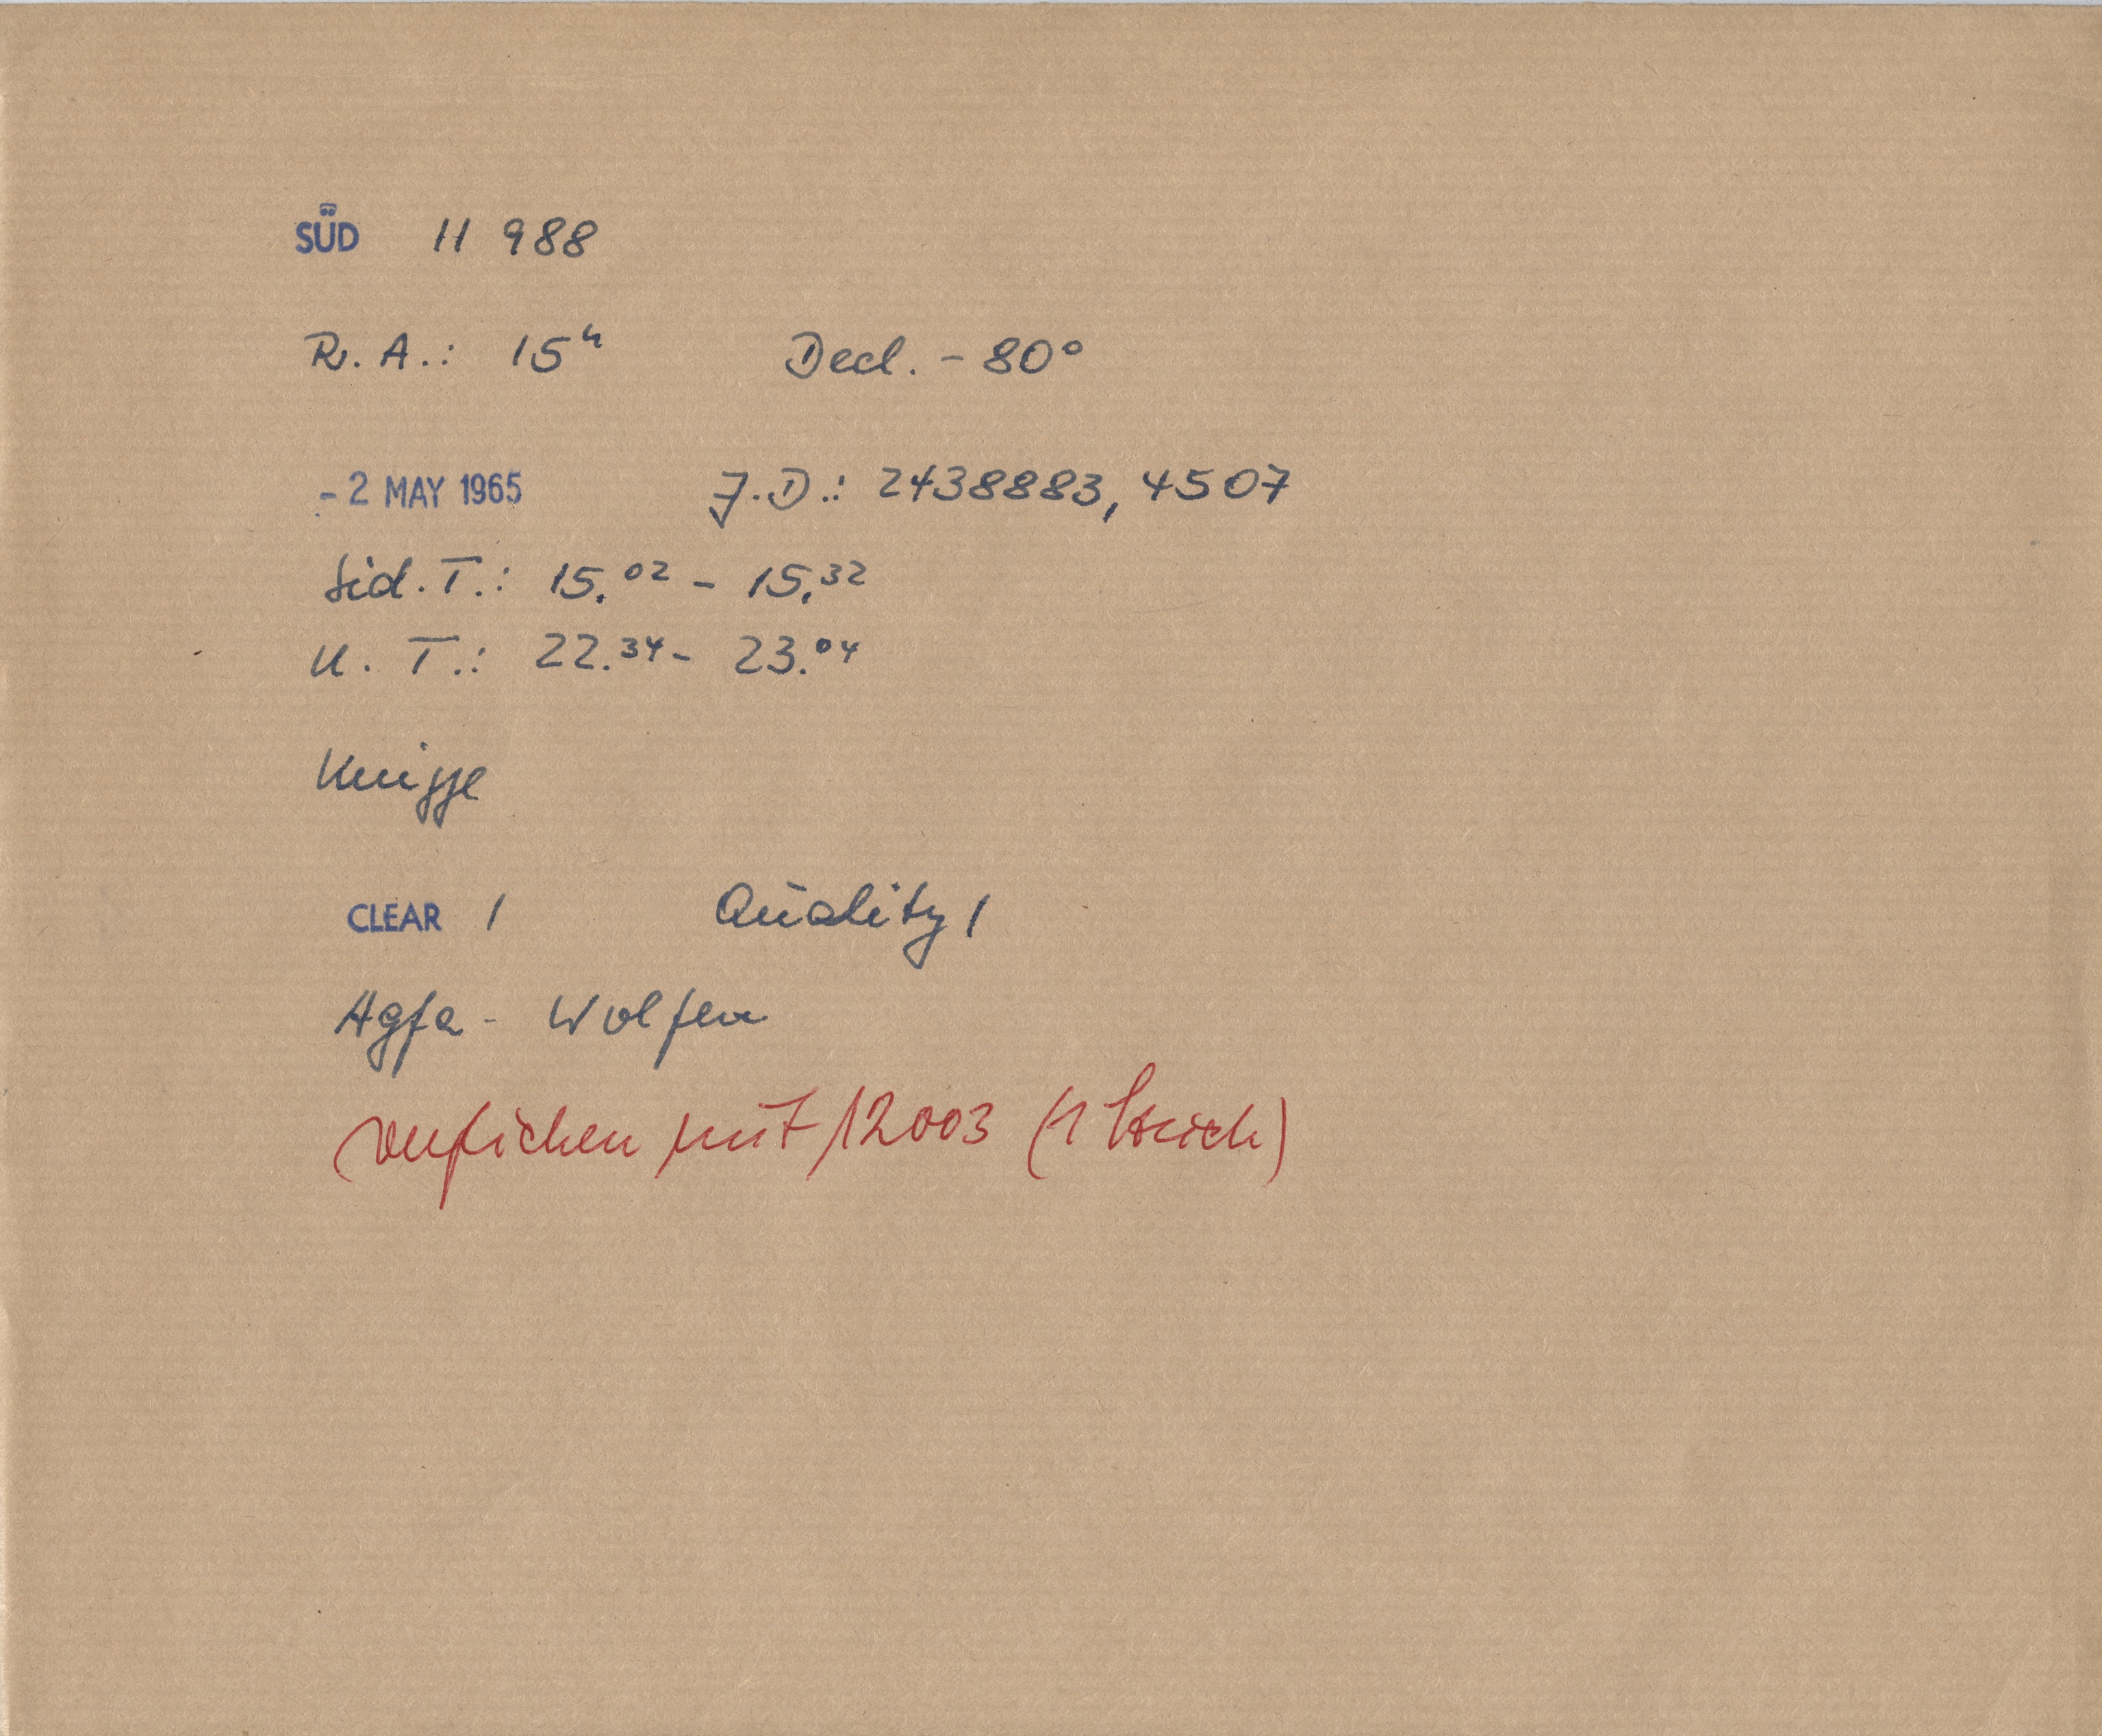 SÜD 11 988
R. A.: 15ʰ Decl. - 80°
- 2 MAY 1965 J.D.: 2438883, 4507
Sid. T.: 15.⁰² - 15.³²
U. T.: 22.³⁴ - 23.⁰⁴
Knigge
CLEAR 1 Quality 1
Agfa - Wolfen
verglichen mit 12003 (1 Strich)